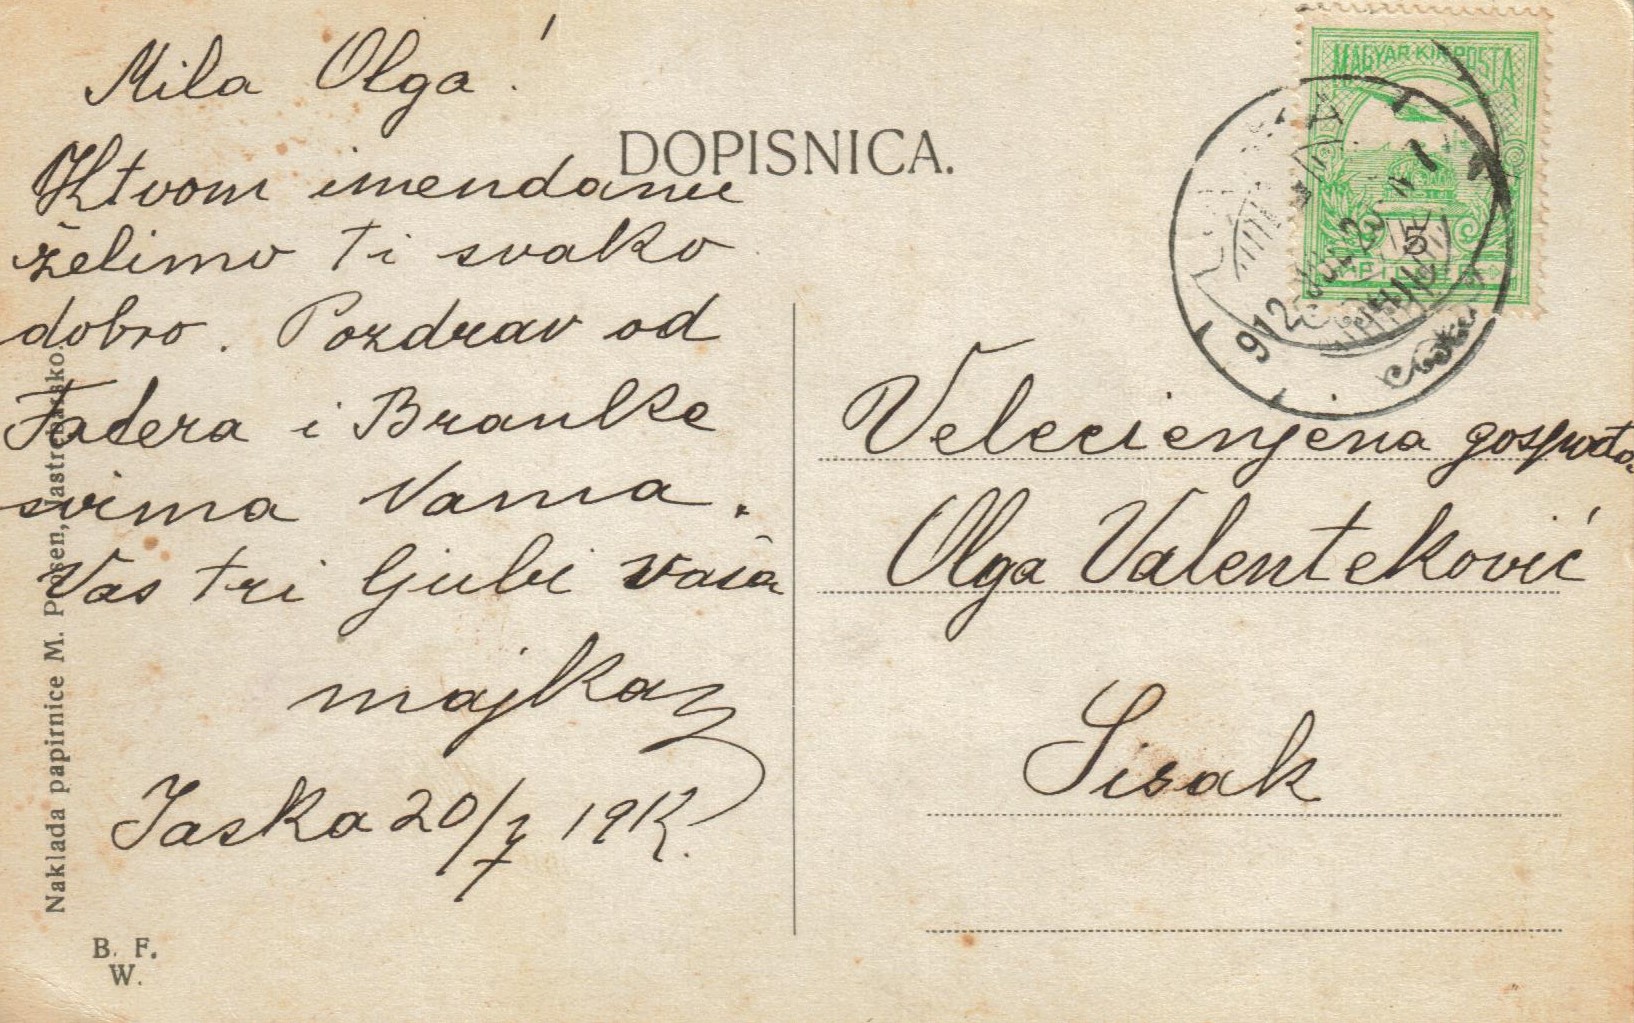 Mila Olga!
K tvom imendanu
želimo ti svako
dobro. Pozdrav od
Fadera i Branke
svima Vama.
Vas tri ljubi vaša
majka
Jaska 20/7 1912.
DOPISNICA.
MAGYAR KIR POSTA
5
912
Velecienjena gospođa
Olga Valenteković
Sisak
Naklada papirnice M. Posen, Jastrebarsko.
B. F.
W.